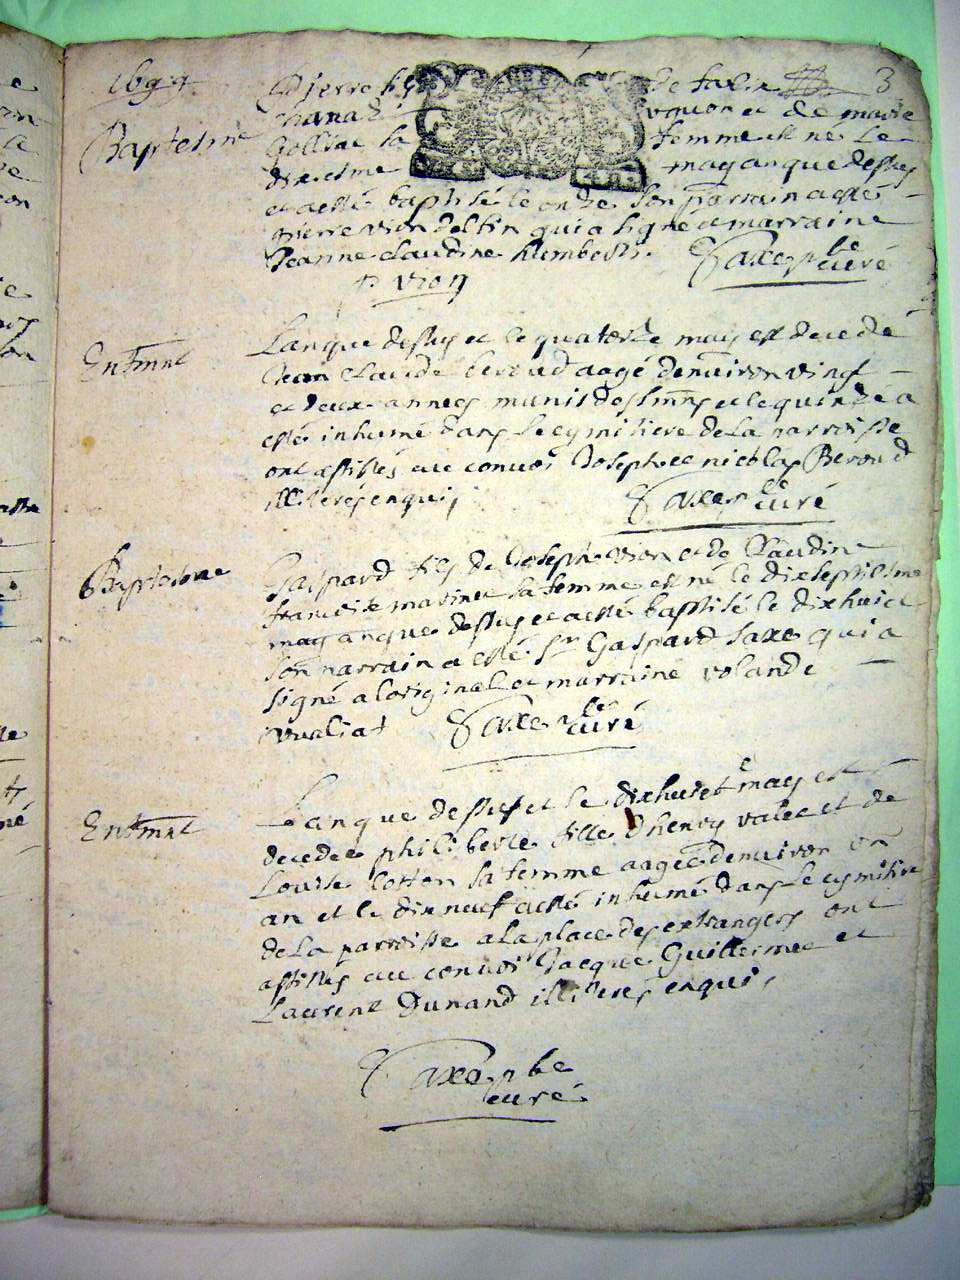 1694
3
Baptesme
Pierre fils
femme est né le
dixiesme may an que dessus
et a esté baptisé le onze son parrain a esté
pierre vion delfin qui a signé et marraine
Jeanne claudine humbert. Saxe pbre curé
P vion
Entmnt
Lan que dessus et le quatorze may est decedé
Jean Claude beroud aagé denuiron vingt
et deux années munit des smns et le quinze a
esté inhumé dans le cymitiere de la parroisse
ont assistés au conuoi Joseph et nicolas Beroud
illiterés enquis
Saxe pbre curé
Baptesme
Gaspard fils de Joseph vion et de Claudine
francoise sa femme est né le dixseptiesme
may an que dessus et a esté baptisé le dixhuict
son parrain a esté Sr Gaspard Saxe qui a
signé a loriginal et marraine yolande
vualiat Saxe pbre curé
Entmnt
Lan que dessus et le dixhuict may est
decedee philiberte fille d henry valet et de
Louise Cotton sa femme aagée denuiron un
an et le dix neuf a esté inhumé dans le cymitiere
de la parroisse a la place des extrangers ont
assistés au conuoi Jacque Guillermet et
Laurent Dunand illiterés enquis,
Saxe pbre
curé